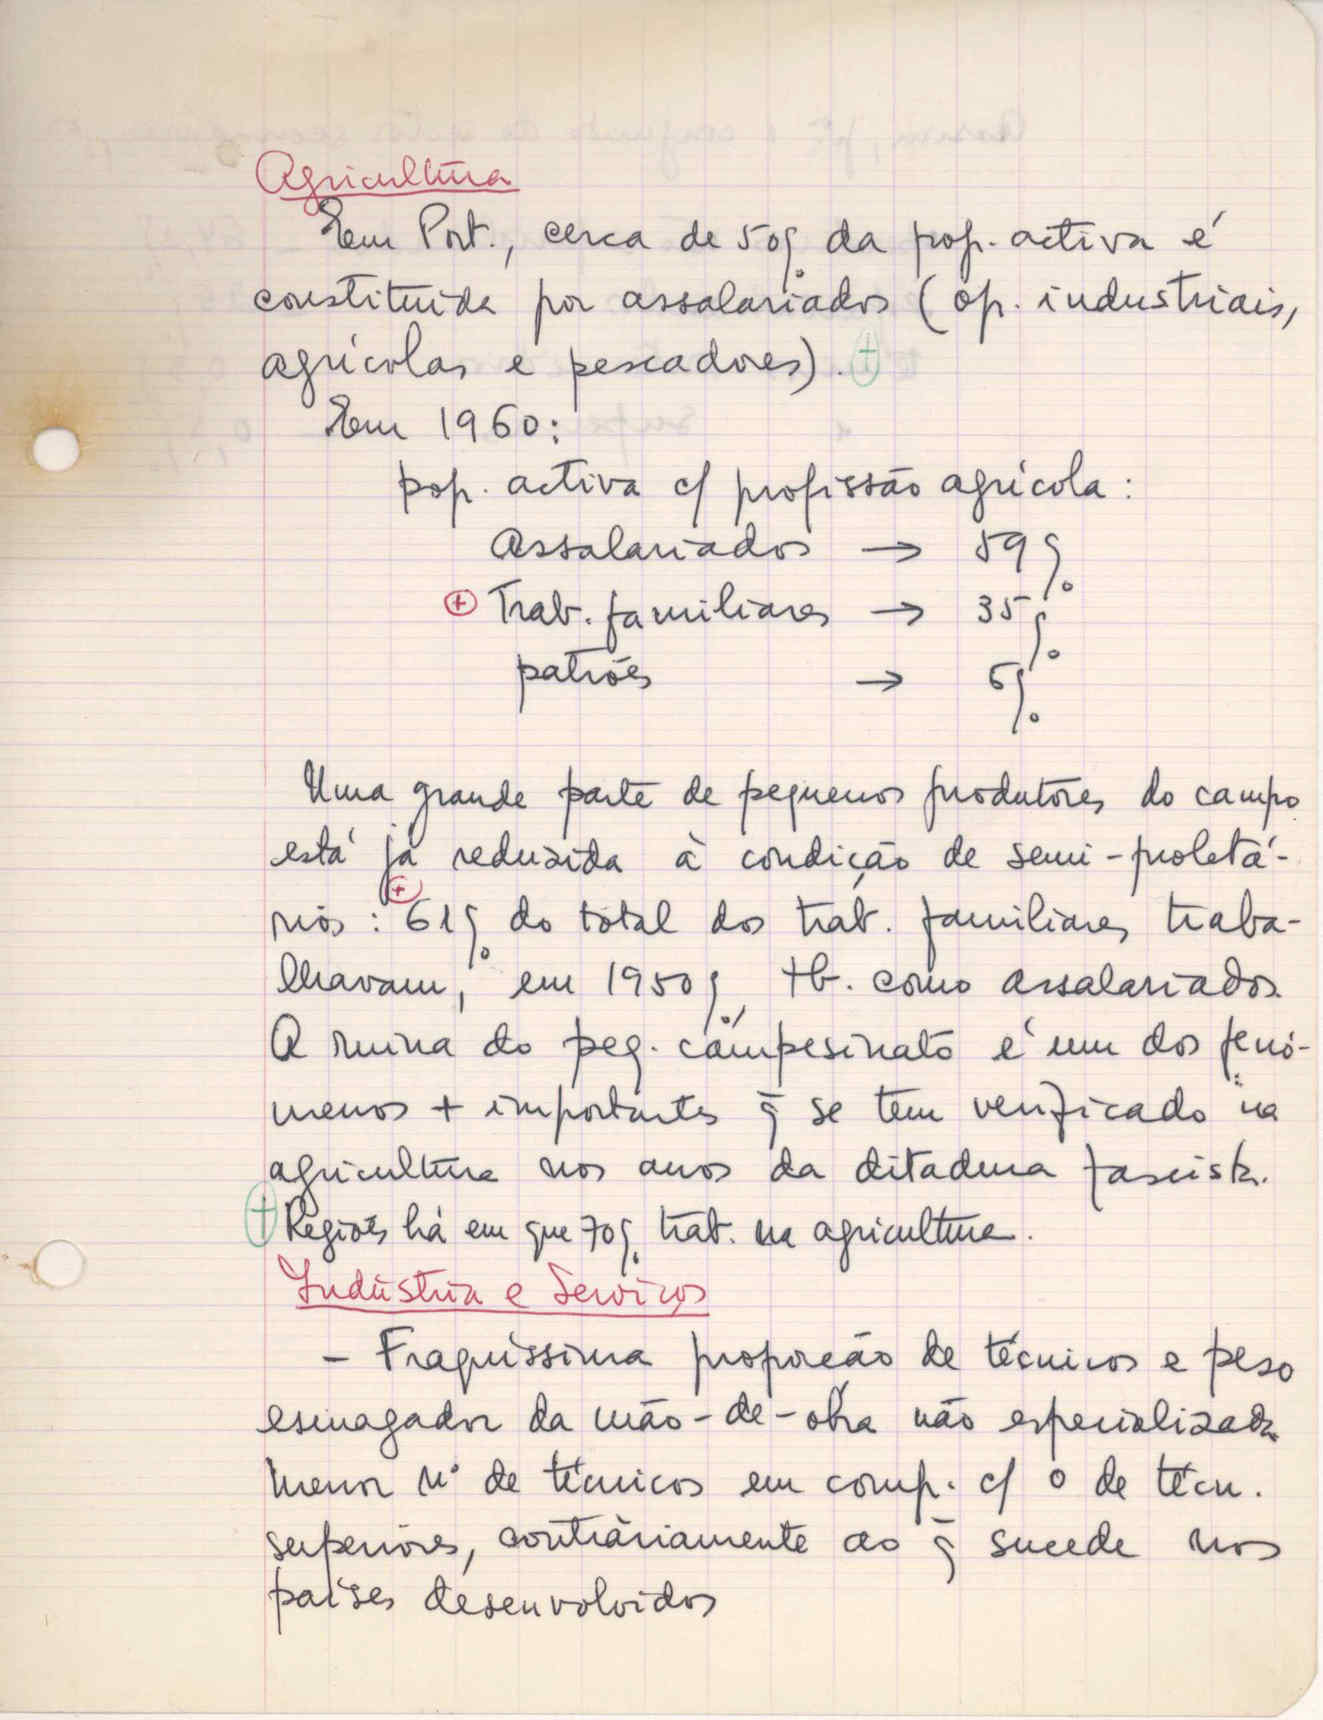 Agricultura
Em Port., cerca de 50% da pop. activa é
constituída por assalariados (op. industriais,
agrícolas e pescadores). +
Em 1960:
pop. activa c/ profissão agrícola:
Assalariados → 59%
+ Trab. familiares → 35%
patrões → 6%
Uma grande parte de pequenos produtores do campo
está já reduzida à condição de semi-proletá-
+
rios: 61% do total dos trab. familiares traba-
lhavam, em 1950% tb. como assalariados.
A ruina do peq. campesinato é um dos fenó-
menos + importantes q̃ se tem verificado na
agricultura nos anos da ditadura fascista.
+ Regiões há em que 70% trab. na agricultura.
Indústria e Serviços
- Fraquíssima proporção de técnicos e peso
esmagador da mão-de-obra não especializada.
Menor nº de técnicos em comp. c/ o de técn.
superiores, contràriamente ao q̃ sucede nos
países desenvolvidos